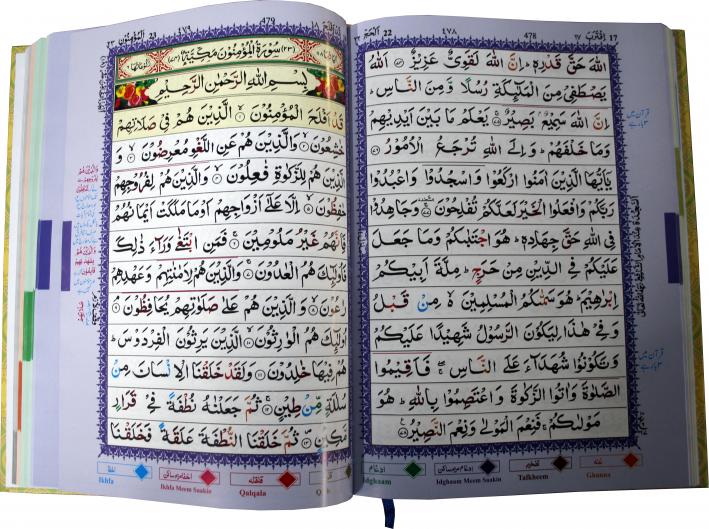 اِقْتَرَبَ 17
478
٤٧٨
اَلْحَجّ 22
اللّٰهَ حَقَّ قَدْرِهٖ اِنَّ اللّٰهَ لَقَوِیٌّ عَزِیْزٌ اَللّٰهُ
یَصْطَفِیْ مِنَ الْمَلٰٓئِكَةِ رُسُلًا وَّمِنَ النَّاسِ
اِنَّ اللّٰهَ سَمِیْعٌۢ بَصِیْرٌ یَعْلَمُ مَا بَیْنَ اَیْدِیْهِمْ
وَمَا خَلْفَهُمْ وَاِلَی اللّٰهِ تُرْجَعُ الْاُمُوْرُ
یٰۤاَیُّهَا الَّذِیْنَ اٰمَنُوا ارْكَعُوْا وَاسْجُدُوْا وَاعْبُدُوْا
رَبَّكُمْ وَافْعَلُوا الْخَیْرَ لَعَلَّكُمْ تُفْلِحُوْنَ وَجَاهِدُوْا
فِی اللّٰهِ حَقَّ جِهَادِهٖ هُوَ اجْتَبٰىكُمْ وَمَا جَعَلَ
عَلَیْكُمْ فِی الدِّیْنِ مِنْ حَرَجٍ مِلَّةَ اَبِیْكُمْ
اِبْرٰهِیْمَ هُوَ سَمّٰىكُمُ الْمُسْلِمِیْنَ مِنْ قَبْلُ
وَفِیْ هٰذَا لِیَكُوْنَ الرَّسُوْلُ شَهِیْدًا عَلَیْكُمْ
وَتَكُوْنُوْا شُهَدَآءَ عَلَی النَّاسِ فَاَقِیْمُوا
الصَّلٰوةَ وَاٰتُوا الزَّكٰوةَ وَاعْتَصِمُوْا بِاللّٰهِ هُوَ
مَوْلٰىكُمْ فَنِعْمَ الْمَوْلٰی وَنِعْمَ النَّصِیْرُ
غنه
Ghunna
تفخیم
Tafkheem
ادغام میم ساکن
Idghaam Meem Saakin
ادغام
Idghaam
479
٤٧٩
اَلْمُؤْمِنُوْنَ 23
سُوْرَةُ الْمُؤْمِنُوْنَ مَكِّیَّةٌ
بِسْمِ اللّٰهِ الرَّحْمٰنِ الرَّحِیْمِ
قَدْ اَفْلَحَ الْمُؤْمِنُوْنَ الَّذِیْنَ هُمْ فِیْ صَلَاتِهِمْ
خٰشِعُوْنَ وَالَّذِیْنَ هُمْ عَنِ اللَّغْوِ مُعْرِضُوْنَ وَ
الَّذِیْنَ هُمْ لِلزَّكٰوةِ فٰعِلُوْنَ وَالَّذِیْنَ هُمْ لِفُرُوْجِهِمْ
حٰفِظُوْنَ اِلَّا عَلٰۤی اَزْوَاجِهِمْ اَوْ مَا مَلَكَتْ اَیْمَانُهُمْ
فَاِنَّهُمْ غَیْرُ مَلُوْمِیْنَ فَمَنِ ابْتَغٰی وَرَآءَ ذٰلِكَ
فَاُولٰٓئِكَ هُمُ الْعٰدُوْنَ وَالَّذِیْنَ هُمْ لِاَمٰنٰتِهِمْ وَعَهْدِهِمْ
رٰعُوْنَ وَالَّذِیْنَ هُمْ عَلٰی صَلَوٰتِهِمْ یُحَافِظُوْنَ
اُولٰٓئِكَ هُمُ الْوٰرِثُوْنَ الَّذِیْنَ یَرِثُوْنَ الْفِرْدَوْسَ
هُمْ فِیْهَا خٰلِدُوْنَ وَلَقَدْ خَلَقْنَا الْاِنْسَانَ مِنْ
سُلٰلَةٍ مِّنْ طِیْنٍ ثُمَّ جَعَلْنٰهُ نُطْفَةً فِیْ قَرَارٍ
مَّكِیْنٍ ثُمَّ خَلَقْنَا النُّطْفَةَ عَلَقَةً فَخَلَقْنَا
قلقله
Qalqala
اخفا میم ساکن
Ikhfa Meem Saakin
اخفا
Ikhfa